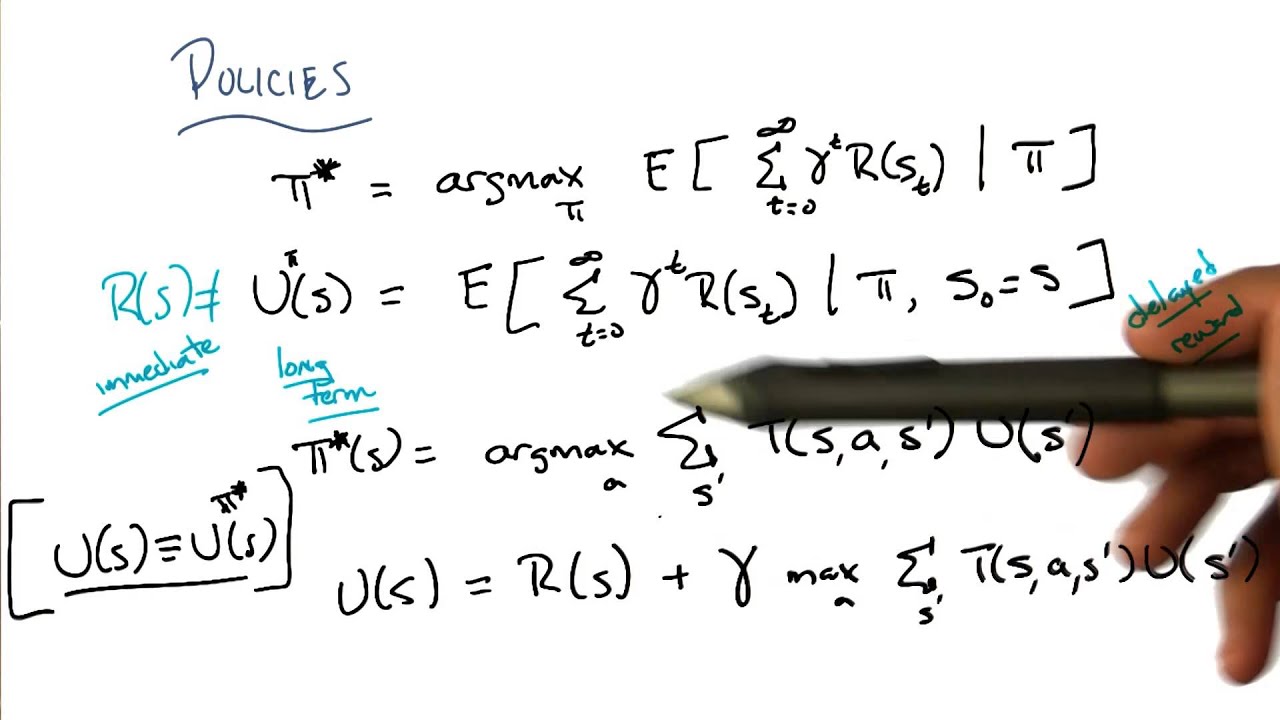 POLICIES
π* = argmax_π E[ ∑_{t=0}^∞ γ^t R(s_t) | π ]
R(s) ≠ U^π(s) = E[ ∑_{t=0}^∞ γ^t R(s_t) | π, s_0 = s ]
immediate
long term
delayed reward
π*(s) = argmax_a ∑_{s'} T(s,a,s') U(s')
[ U(s) ≡ U^{π*}(s) ]
U(s) = R(s) + γ max_a ∑_{s'} T(s,a,s') U(s')